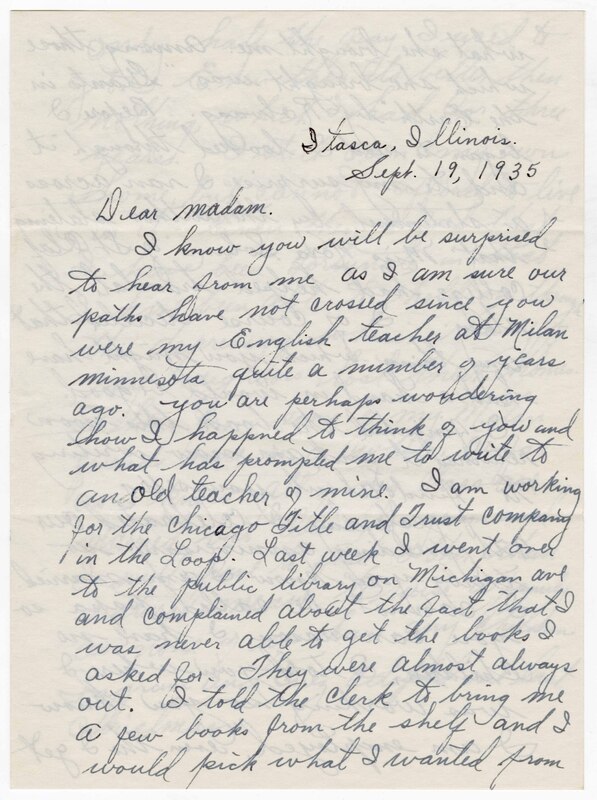 Itasca, Illinois.
Sept. 19, 1935
Dear Madam.
I know you will be surprised
to hear from me as I am sure our
paths have not crossed since you
were my English teacher at Milan
Minnesota quite a number of years
ago. You are perhaps wondering
how I happned to think of you and
what has prompted me to write to
an old teacher of mine. I am working
for the Chicago Title and Trust company
in the Loop. Last week I went over
to the public library on Michigan ave
and complained about the fact that I
was never able to get the books I
asked for. They were almost always
out. I told the clerk to bring me
a few books from the shelf and I
would pick what I wanted from